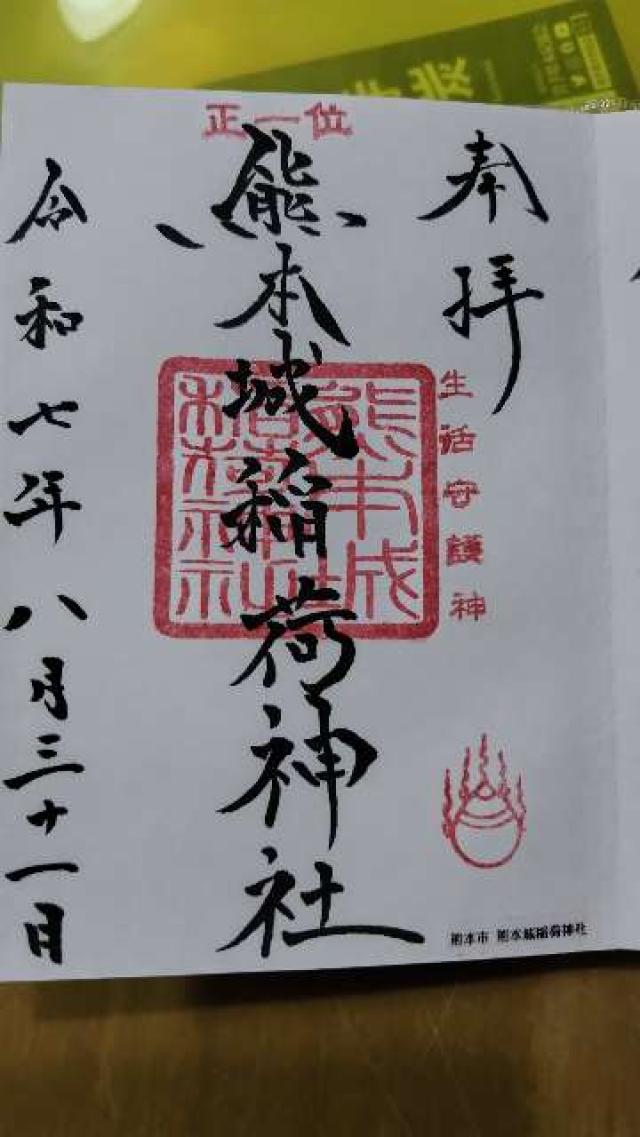 奉拝
生活守護神
正一位
熊本城稲荷神社
熊本城稲荷神社
令和七年八月三十一日
熊本市 熊本城稲荷神社